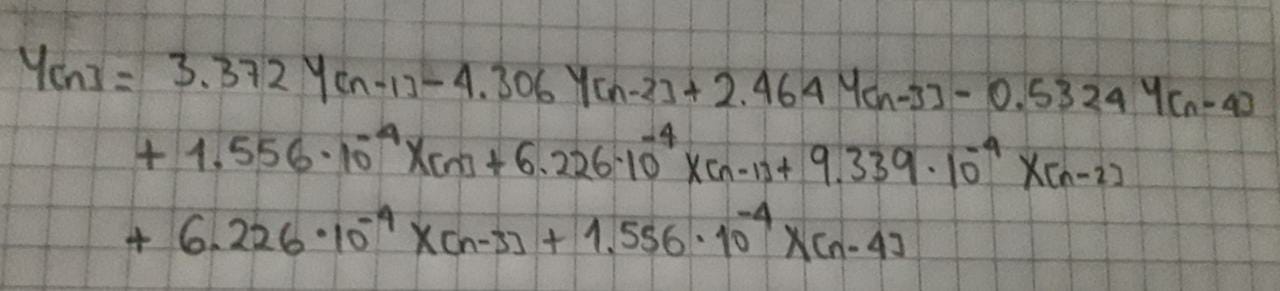 Y[n] = 3.372 Y[n-1] - 4.306 Y[n-2] + 2.464 Y[n-3] - 0.5324 Y[n-4]
+ 1.556·10⁻⁴ X[n] + 6.226·10⁻⁴ X[n-1] + 9.339·10⁻⁴ X[n-2]
+ 6.226·10⁻⁴ X[n-3] + 1.556·10⁻⁴ X[n-4]